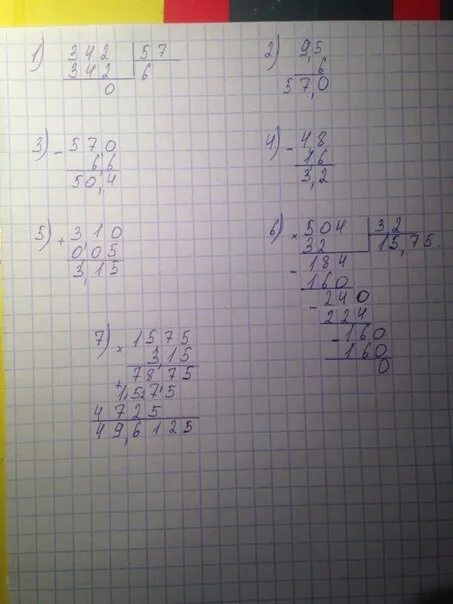 1) 342 | 57
342 6
0
2) 9,5
6
57,0
3) - 57,0
6,6
50,4
4) - 4,8
1,6
3,2
5) + 3,10
0,05
3,15
6) × 504 | 32
32 15,75
- 184
160
- 240
224
- 160
160
0
7) × 1575
3,15
+ 7875
1575
4725
49,6125